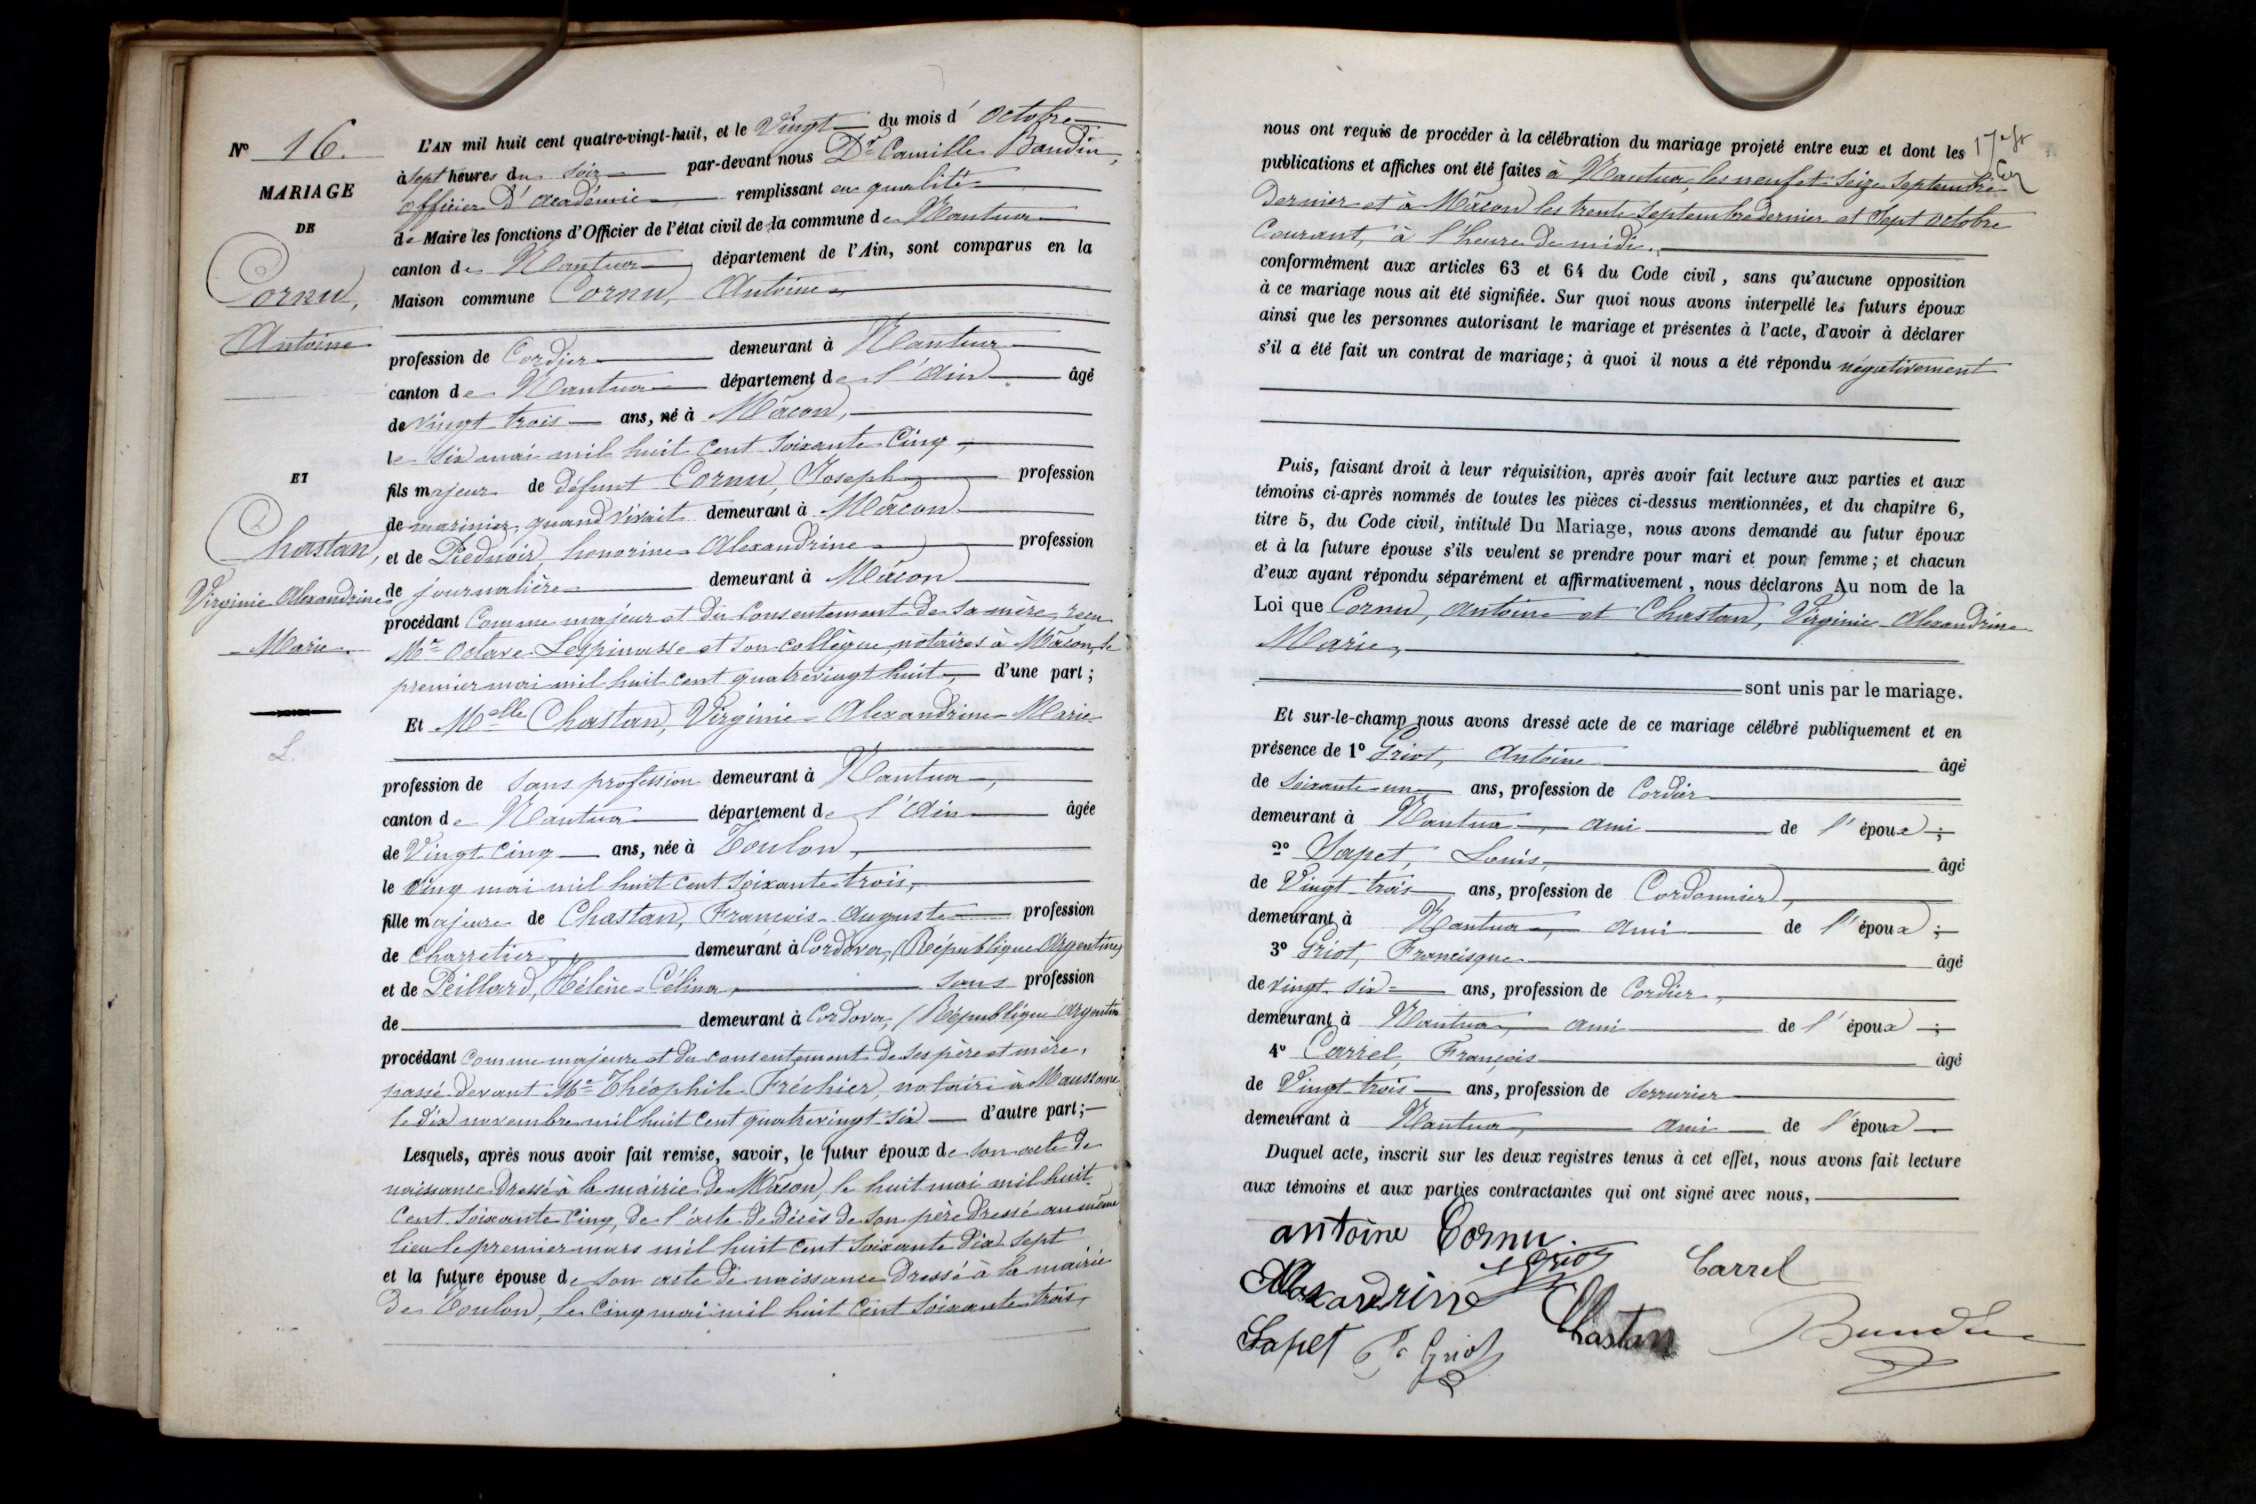 Nº 16.
MARIAGE
DE
Cornu,
Antoine
ET
Chastan,
Virginie Alexandrine
Marie
L.
L'AN mil huit cent quatre-vingt-huit, et le Vingt du mois d'Octobre
à sept heures du soir par-devant nous Dr Camille Baudin,
officier d'académie remplissant en qualité
de Maire les fonctions d'Officier de l'état civil de la commune de Nantua
canton de Nantua département de l'Ain, sont comparus en la
Maison commune Cornu, Antoine
profession de Cordier demeurant à Nantua
canton de Nantua département de l'Ain âgé
de vingt trois ans, né à Mâcon,
le six mai mil huit cent soixante cinq,
fils majeur de défunt Cornu, Joseph profession
de marinier, quand vivait demeurant à Mâcon
et de Piednoir, honorine Alexandrine profession
de journalière demeurant à Mâcon
procédant comme majeur et du consentement de sa mère, reçu
Me Octave Lespinasse et son collègue, notaires à Mâcon, le
premier mai mil huit cent quatrevingt huit, d'une part;
Et Melle Chastan, Virginie Alexandrine Marie
profession de sans profession demeurant à Nantua,
canton de Nantua département de l'Ain âgée
de Vingt cinq ans, née à Toulon,
le cinq mai mil huit cent soixante trois,
fille majeure de Chastan, François Auguste profession
de charretier demeurant à Cordova, (République Argentine)
et de Peillard, Hélène Célina, sans profession
de demeurant à Cordova, (République Argentine
procédant comme majeure et du consentement de ses père et mère,
passé devant Me Théophile Fréchier, notaire à Maussane
le dix novembre mil huit cent quatrevingt six d'autre part;
Lesquels, après nous avoir fait remise, savoir, le futur époux de son acte de
naissance dressé à la mairie de Mâcon, le huit mai mil huit
cent soixante cinq, de l'acte de décès de son père dressé au même
lieu le premier mars mil huit cent soixante dix sept
et la future épouse de son acte de naissance dressé à la mairie
de Toulon, le cinq mai mil huit cent soixante trois,
nous ont requis de procéder à la célébration du mariage projeté entre eux et dont les
publications et affiches ont été faites à Nantua, les neuf et seize septembre
dernier et à Mâcon les trente septembre dernier et sept octobre
courant, à l'heure de midi.
conformément aux articles 63 et 64 du Code civil, sans qu'aucune opposition
à ce mariage nous ait été signifiée. Sur quoi nous avons interpellé les futurs époux
ainsi que les personnes autorisant le mariage et présentes à l'acte, d'avoir à déclarer
s'il a été fait un contrat de mariage; à quoi il nous a été répondu négativement
Puis, faisant droit à leur réquisition, après avoir fait lecture aux parties et aux
témoins ci-après nommés de toutes les pièces ci-dessus mentionnées, et du chapitre 6,
titre 5, du Code civil, intitulé Du Mariage, nous avons demandé au futur époux
et à la future épouse s'ils veulent se prendre pour mari et pour femme; et chacun
d'eux ayant répondu séparément et affirmativement, nous déclarons Au nom de la
Loi que Cornu, Antoine et Chastan, Virginie Alexandrine
Marie,
sont unis par le mariage.
Et sur-le-champ nous avons dressé acte de ce mariage célébré publiquement et en
présence de 1º Griot, Antoine âgé
de soixante un ans, profession de Cordier
demeurant à Nantua, ami de l'époux;
2º Sapet, Louis, âgé
de Vingt trois ans, profession de Cordonnier,
demeurant à Nantua, ami de l'époux;
3º Griot, Francisque âgé
de vingt six ans, profession de Cordier,
demeurant à Nantua, ami de l'époux;
4º Carrel, François âgé
de Vingt trois ans, profession de serrurier
demeurant à Nantua, ami de l'époux
Duquel acte, inscrit sur les deux registres tenus à cet effet, nous avons fait lecture
aux témoins et aux parties contractantes qui ont signé avec nous,
antoine Cornu
Griot Carrel
Alexandrine Chastan
Sapet Griot Baudin